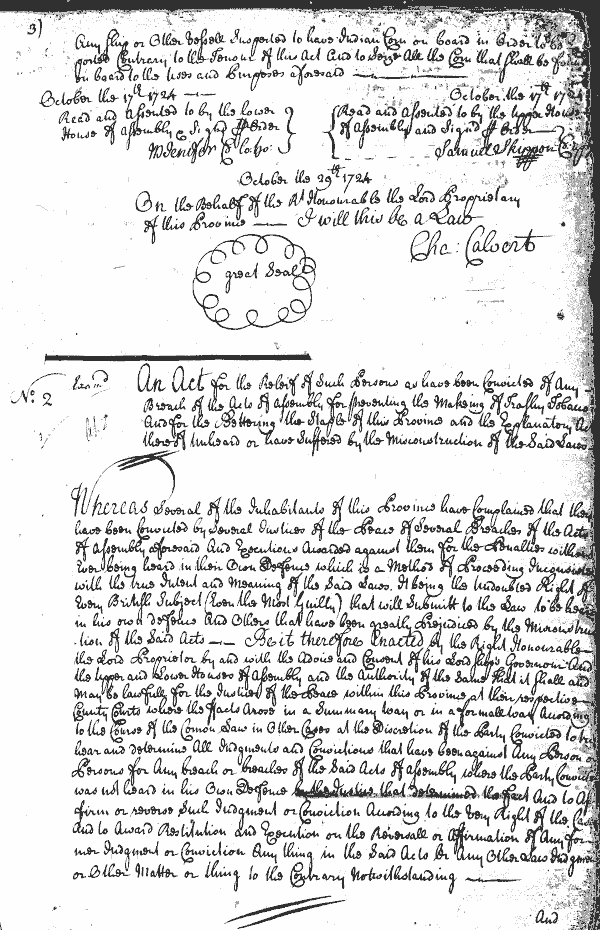 3)
Any Ship or Other Vessell Suspected to have Indian Corn on board in Order to be
ported Contrary to the Tenour of this Act And to Seize All the Corn that shall be found
on board to the Uses and Purposes aforesaid
October the 17th 1724
Read and Assented to by the Lower
House of Assembly & Signd P Order
MJenifer Cl Lo: Ho:
October the 17th 172
Read and Assented to by the Upper House
of Assembly and Signd P Order
Samuel Skippon
October the 29th 1724
On the Behalf of the Rt Honourable the Lord Proprietary
of this Province — I will this be a Law
Cha: Calvert
great Seal
No. 2
Exa:md
An Act for the Relief of Such Persons as have been Convicted of Any
Breach of the Acts of Assembly for preventing the Making of Trashy Tobacco
And for the Bettering the Staple of this Province and the Explanatory A
thereof Unheard or have Suffered by the Misconstruction of the Said Laws
Whereas Several of the Inhabitants of this Province have Complained that they
have been Convicted by Several Justices of the Peace of Several Breaches of the Acts
of Assembly aforesaid And Executions Awarded against them for the Penalties without
Ever being heard in their Own Defence which is a Method of Proceeding Inconsisten
with the true Intent and Meaning of the Said Laws. It being the Undoubted Right of
Every British Subject (Even the Most Guilty) that will Submitt to the Law to be heard
in his own defence And Others that have been greatly Prejudiced by the Misconstruc
tion of the Said Acts — Be it therefore Enacted by the Right Honourable
the Lord Proprietor by and with the Advice and Consent of his Lordships Governour And
the Upper and Lower Houses of Assembly and the Authority of the Same that it shall and
May be lawfull for the Justices of the Peace within this Province at their respective
County Courts where the ffacts Arose in a Summary way or in a formall way According
to the Course of the Comon Law in Other Cases at the Discretion of the Party Convicted to try
hear and determine All Judgments and Convictions that have been against Any Person or
Persons for Any breach or breaches of the Said Acts of Assembly where the Party Convicted
was not heard in his Own Defence by the Justice that determined the ffact And to Af
firm or reverse Such Judgment or Conviction According to the Very Right of the Case
And to Award Restitution and Execution on the Reversall or Affirmation of Any for
mer Judgment or Conviction Any thing in the Said Acts or Any Other Law Judgment
or Other Matter or thing to the Contrary Notwithstanding
And